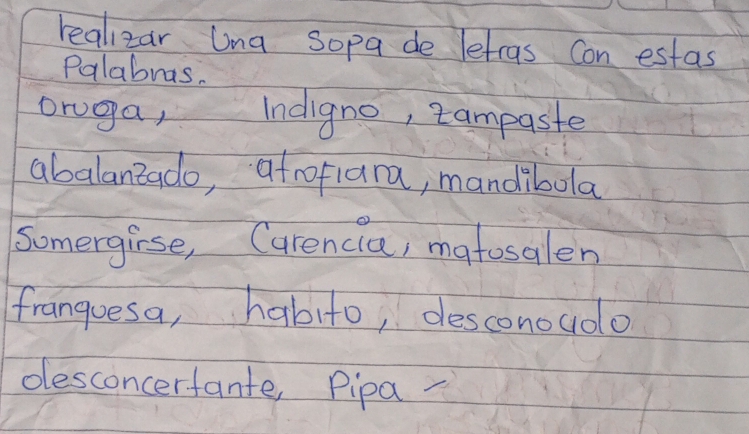 realizar Una sopa de letras con estas
Palabras.
oruga, Indigno, zampaste
abalanzado, atrofiara, mandibula
Sumergirse, Carencia, matosalen
franquesa, habito, desconocido
desconcertante, Pipa